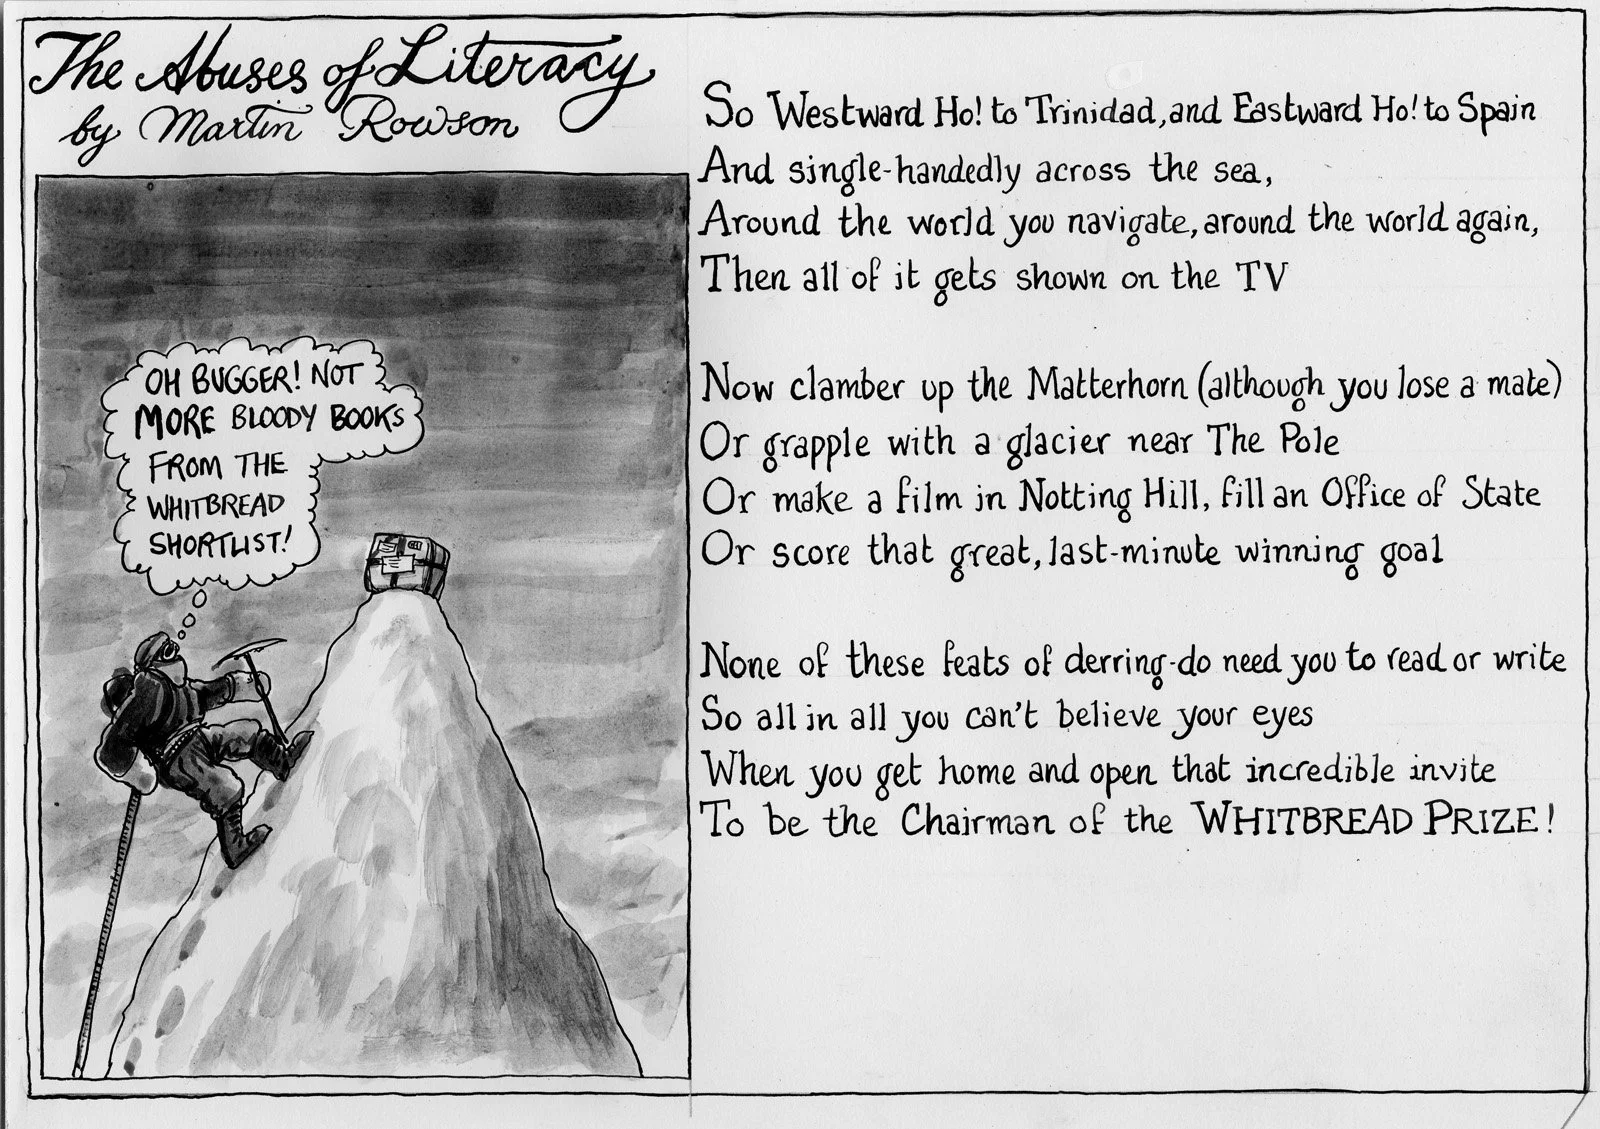 The Abuses of Literacy
by Martin Rowson
OH BUGGER! NOT
MORE BLOODY BOOKS
FROM THE
WHITBREAD
SHORTLIST!
So Westward Ho! to Trinidad, and Eastward Ho! to Spain
And single-handedly across the sea,
Around the world you navigate, around the world again,
Then all of it gets shown on the TV
Now clamber up the Matterhorn (although you lose a mate)
Or grapple with a glacier near The Pole
Or make a film in Notting Hill, fill an Office of State
Or score that great, last-minute winning goal
None of these feats of derring-do need you to read or write
So all in all you can't believe your eyes
When you get home and open that incredible invite
To be the Chairman of the WHITBREAD PRIZE!